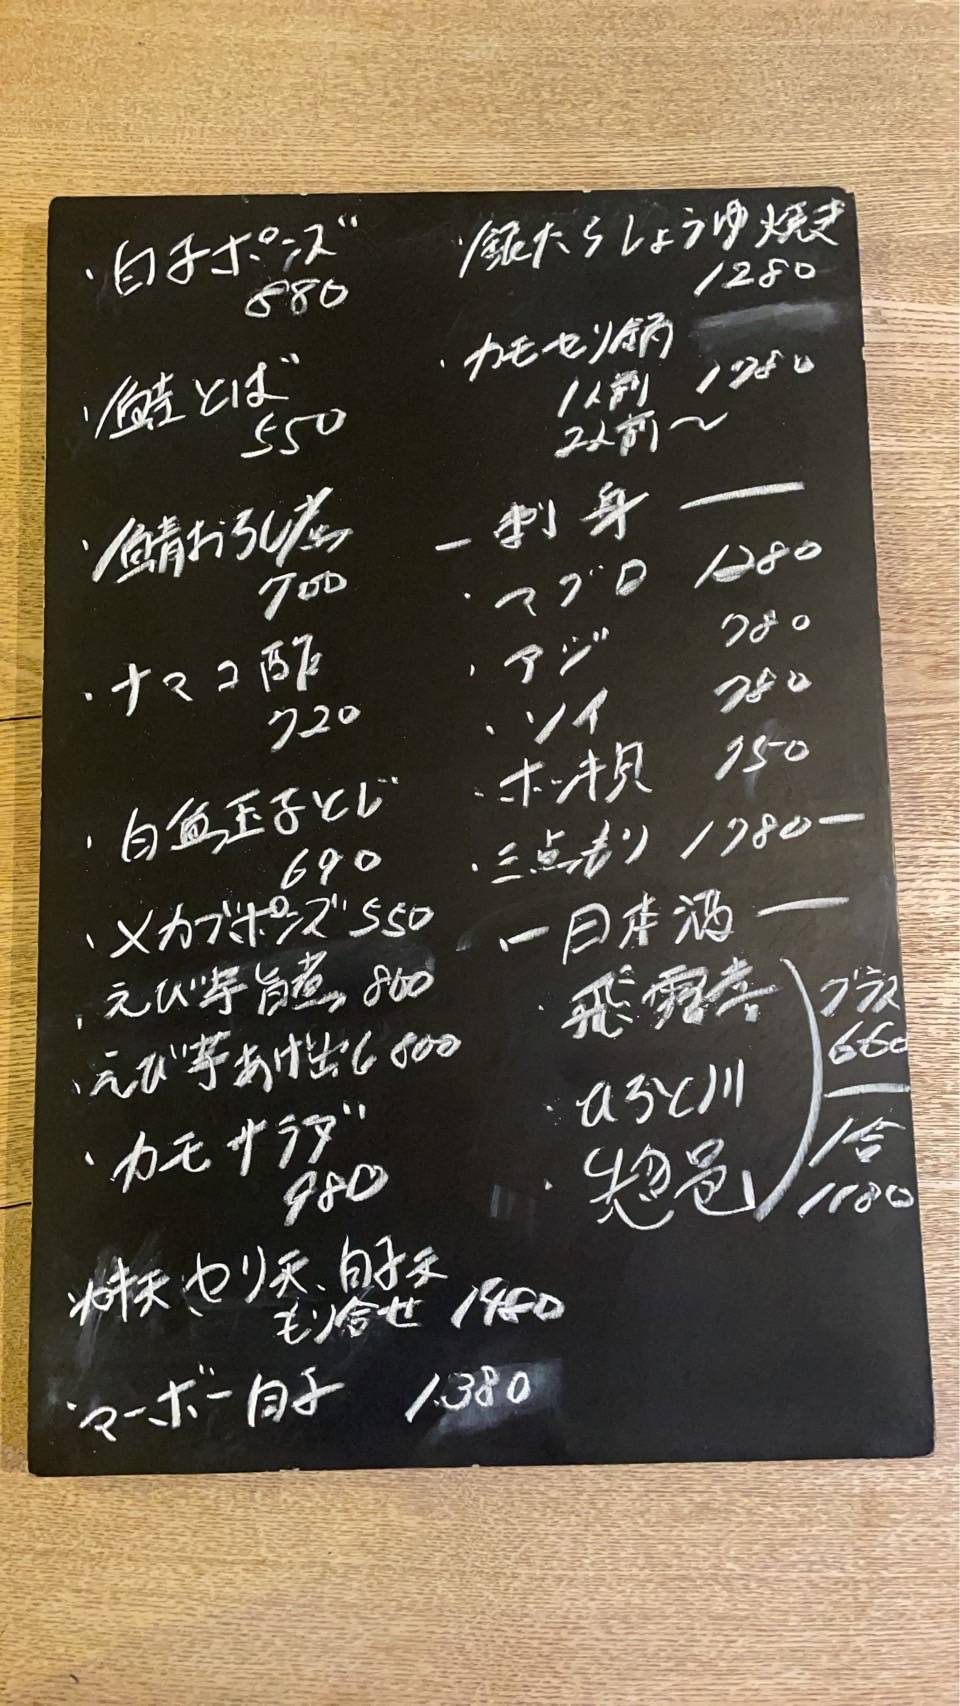 ・白子ポンズ
880
・鮭とば
550
・鯖おろし煮
700
・ナマコ酢
720
・白魚玉子とじ
690
・メカブポンズ 550
・えび芋旨煮 800
・えび芋あげ出し 800
・カモサラダ
980
カキ天、セリ天、白子天
もり合せ 1480
・マーボー白子 1380
・銀たらしょうゆ焼き
1280
・カモセリ鍋
1人前 1780
2人前〜
ー刺身ー
・マグロ 1280
・アジ 780
・ソイ 780
・ホッキ貝 750
・三点もり 1780ー
ー日本酒ー
・飛露喜
・ひろと川
・惣邑
グラス
660
1合
1180